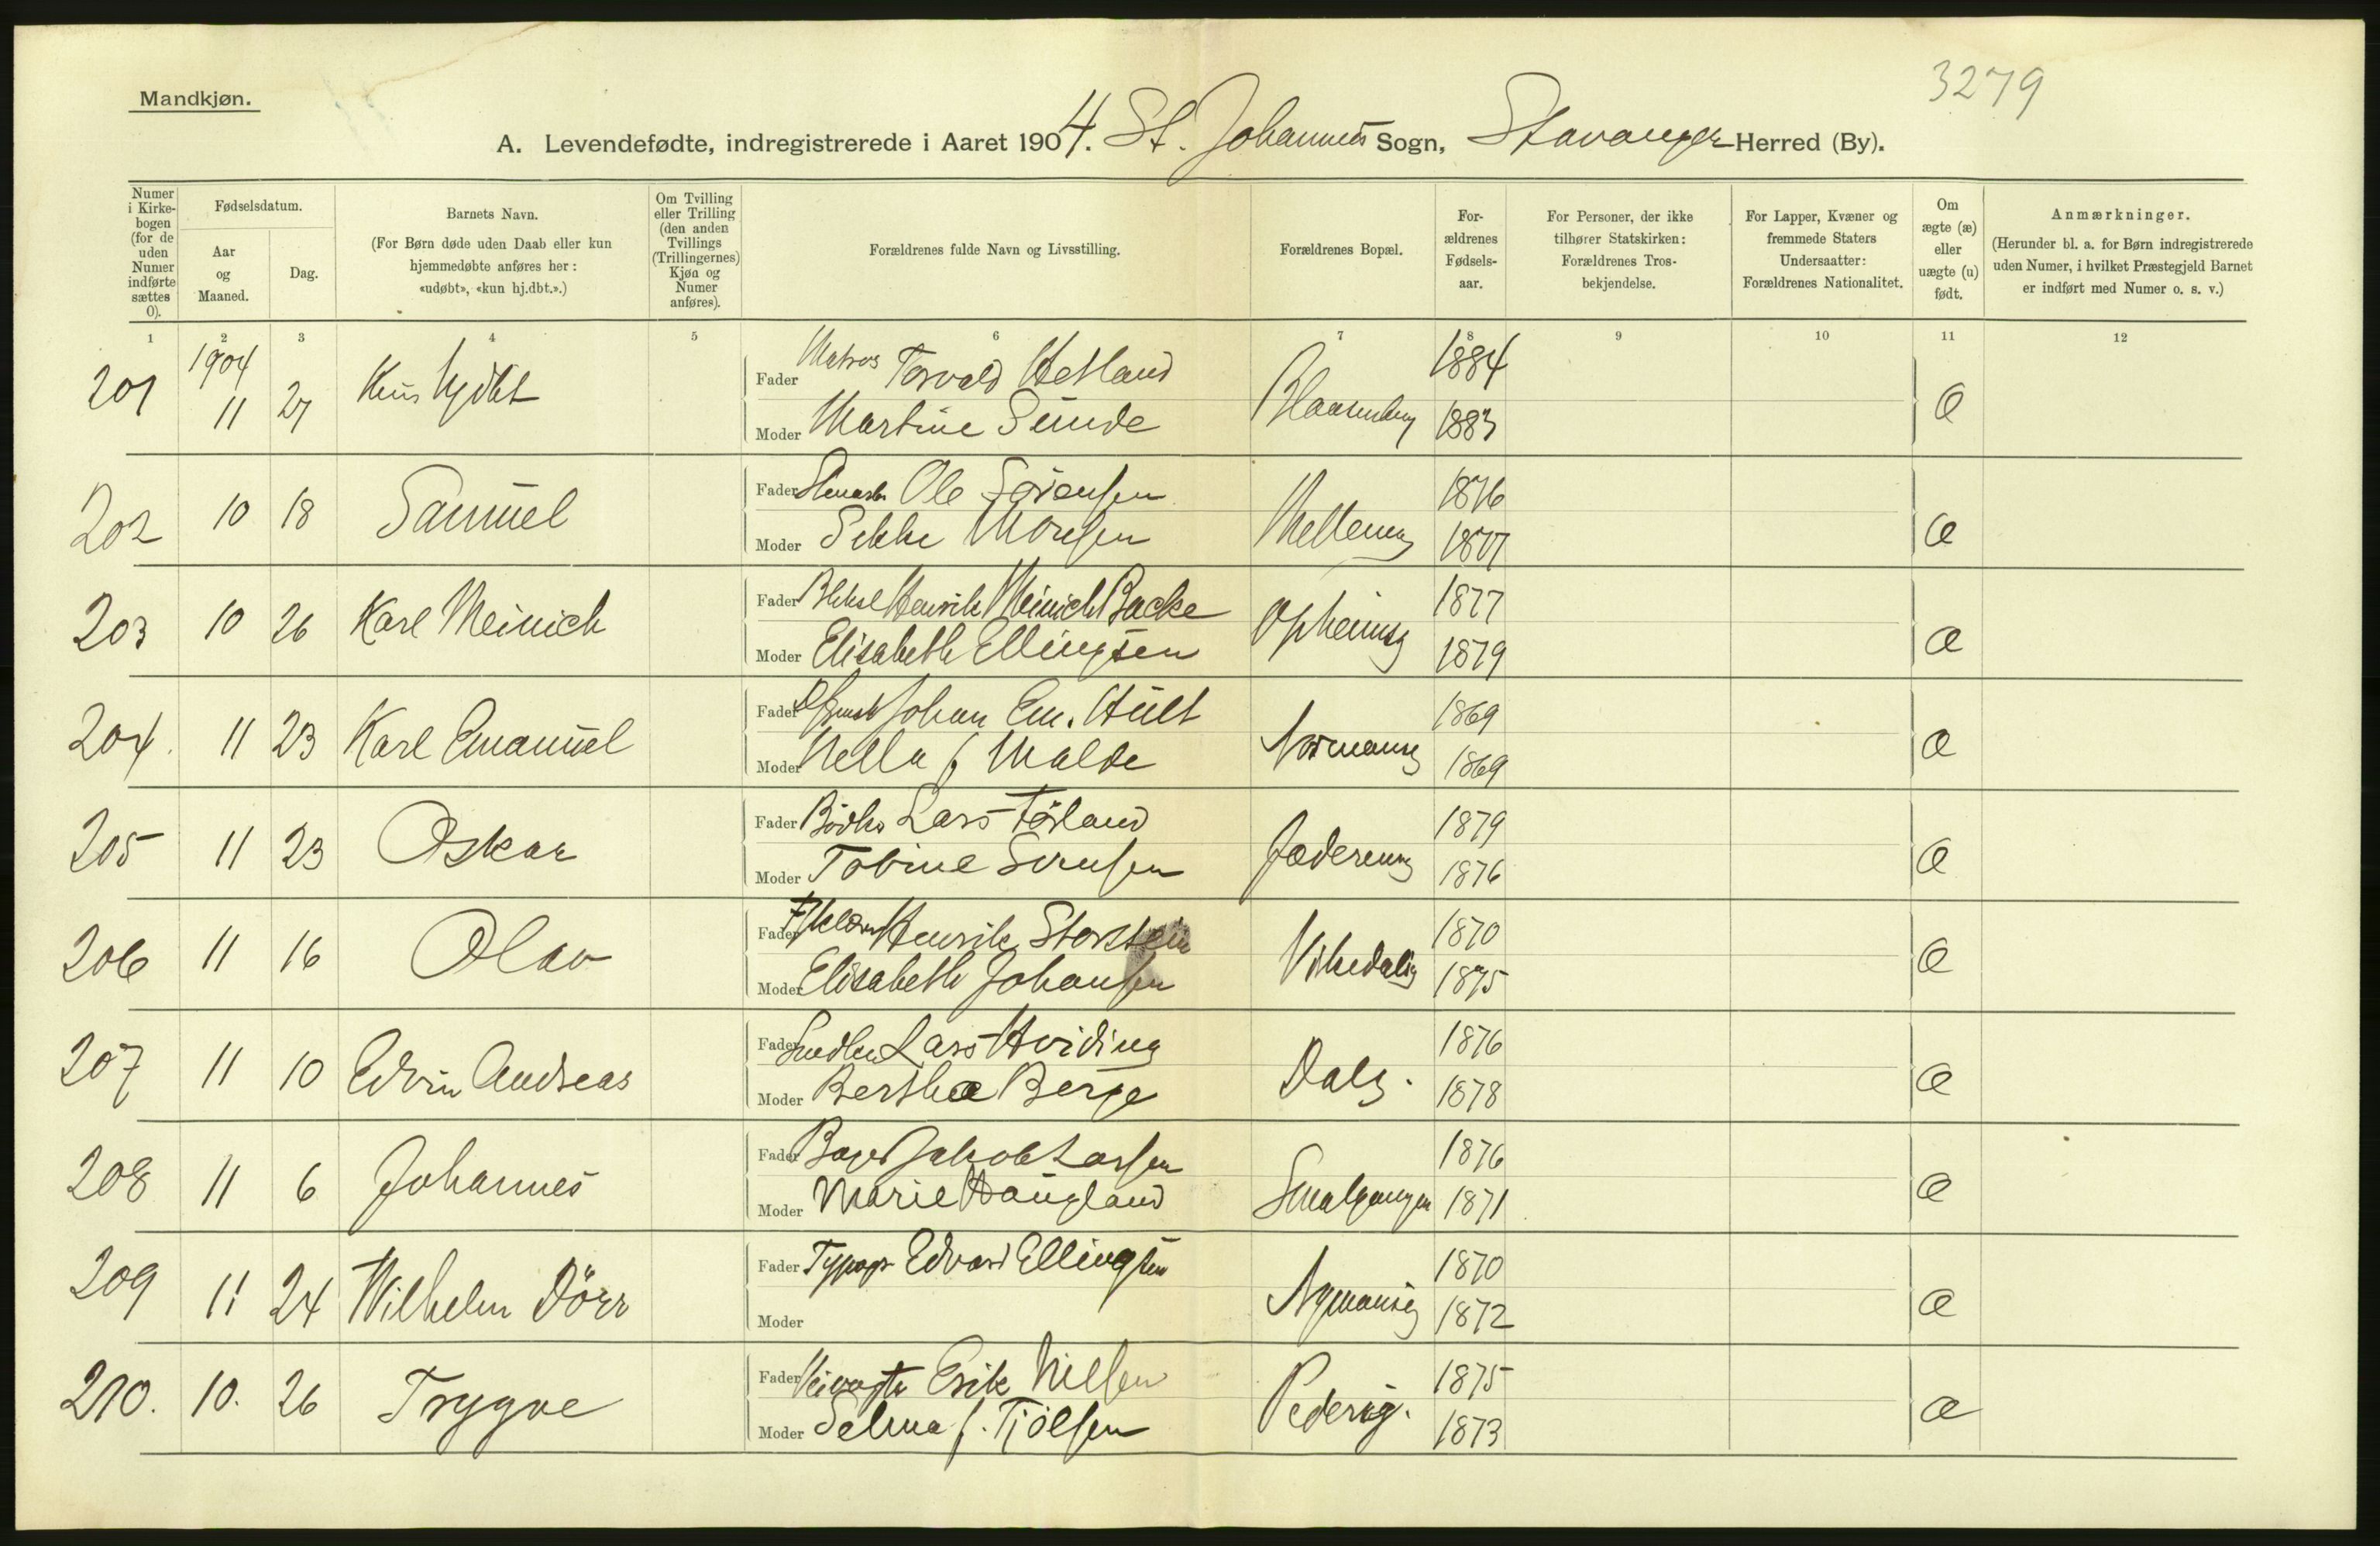 3279
Mandkjøn.
A. Levendefødte, indregistrerede i Aaret 1904. St. Johannes Sogn, Stavanger Herred (By).
Numer i Kirkebogen (for de uden Numer indførte sættes 0).
Fødselsdatum.
Aar og Maaned.
Dag.
Barnets Navn.
(For Børn døde uden Daab eller kun hjemmedøbte anføres her: «udøbt», «kun hj.dbt.».)
Om Tvilling eller Trilling (den anden Tvillings (Trillingernes) Kjøn og Numer anføres).
Forældrenes fulde Navn og Livsstilling.
Forældrenes Bopæl.
Forældrenes Fødselsaar.
For Personer, der ikke tilhører Statskirken: Forældrenes Trosbekjendelse.
For Lapper, Kvæner og fremmede Staters Undersaatter: Forældrenes Nationalitet.
Om ægte (æ) eller uægte (u) født.
Anmærkninger.
(Herunder bl. a. for Børn indregistrerede uden Numer, i hvilket Præstegjeld Barnet er indført med Numer o. s. v.)
1 2 3 4 5 6 7 8 9 10 11 12
201 1904 11 27 Kun hjdbt Fader Matros Torvald Hetland 1884 æ
Moder Martine Sunde 1883
202 10 18 Samuel Fader Ole Sørensen 1876 æ
Moder Morsen 1877
203 10 26 Karl Meinich Fader Henrik Meinich Backe Opheimsg 1877 æ
Moder Elisabeth Ellingsen 1879
204. 11 23 Karl Emanuel Fader Johan Em. Hult Normansg 1869 æ
Moder Nella f Malde 1869
205 11 23 Oskar Fader Lars Tørland Jæderensg 1879 æ
Moder Tobine Svensen 1876
206 11 16 Olav Fader Henrik Storstein Vikedalsg 1870 æ
Moder Elisabeth Johansen 1875
207 11 10 Edvin Andreas Fader Lars Hviding Dalg. 1876 æ
Moder Bertha Berge 1878
208 11 6 Johannes Fader Bager Jakob Larsen Smalgangen 1876 æ
Moder Marie Haugland 1871
209 11 24 Wilhelm Dörr Fader Typogr Edvard Ellingsen Nymansg 1870 æ
Moder 1872
210. 10. 26 Trygve Fader Erik Nilsen Pedersg. 1875 æ
Moder Selma f. Tjölsen 1873